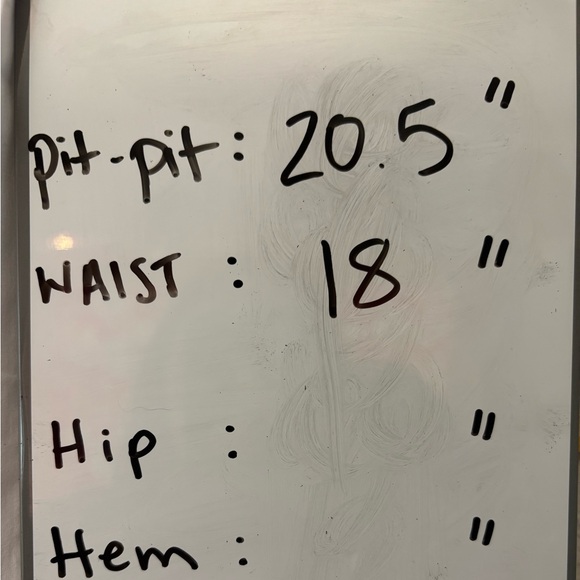 pit-pit: 20.5"
WAIST: 18"
Hip: "
Hem: "